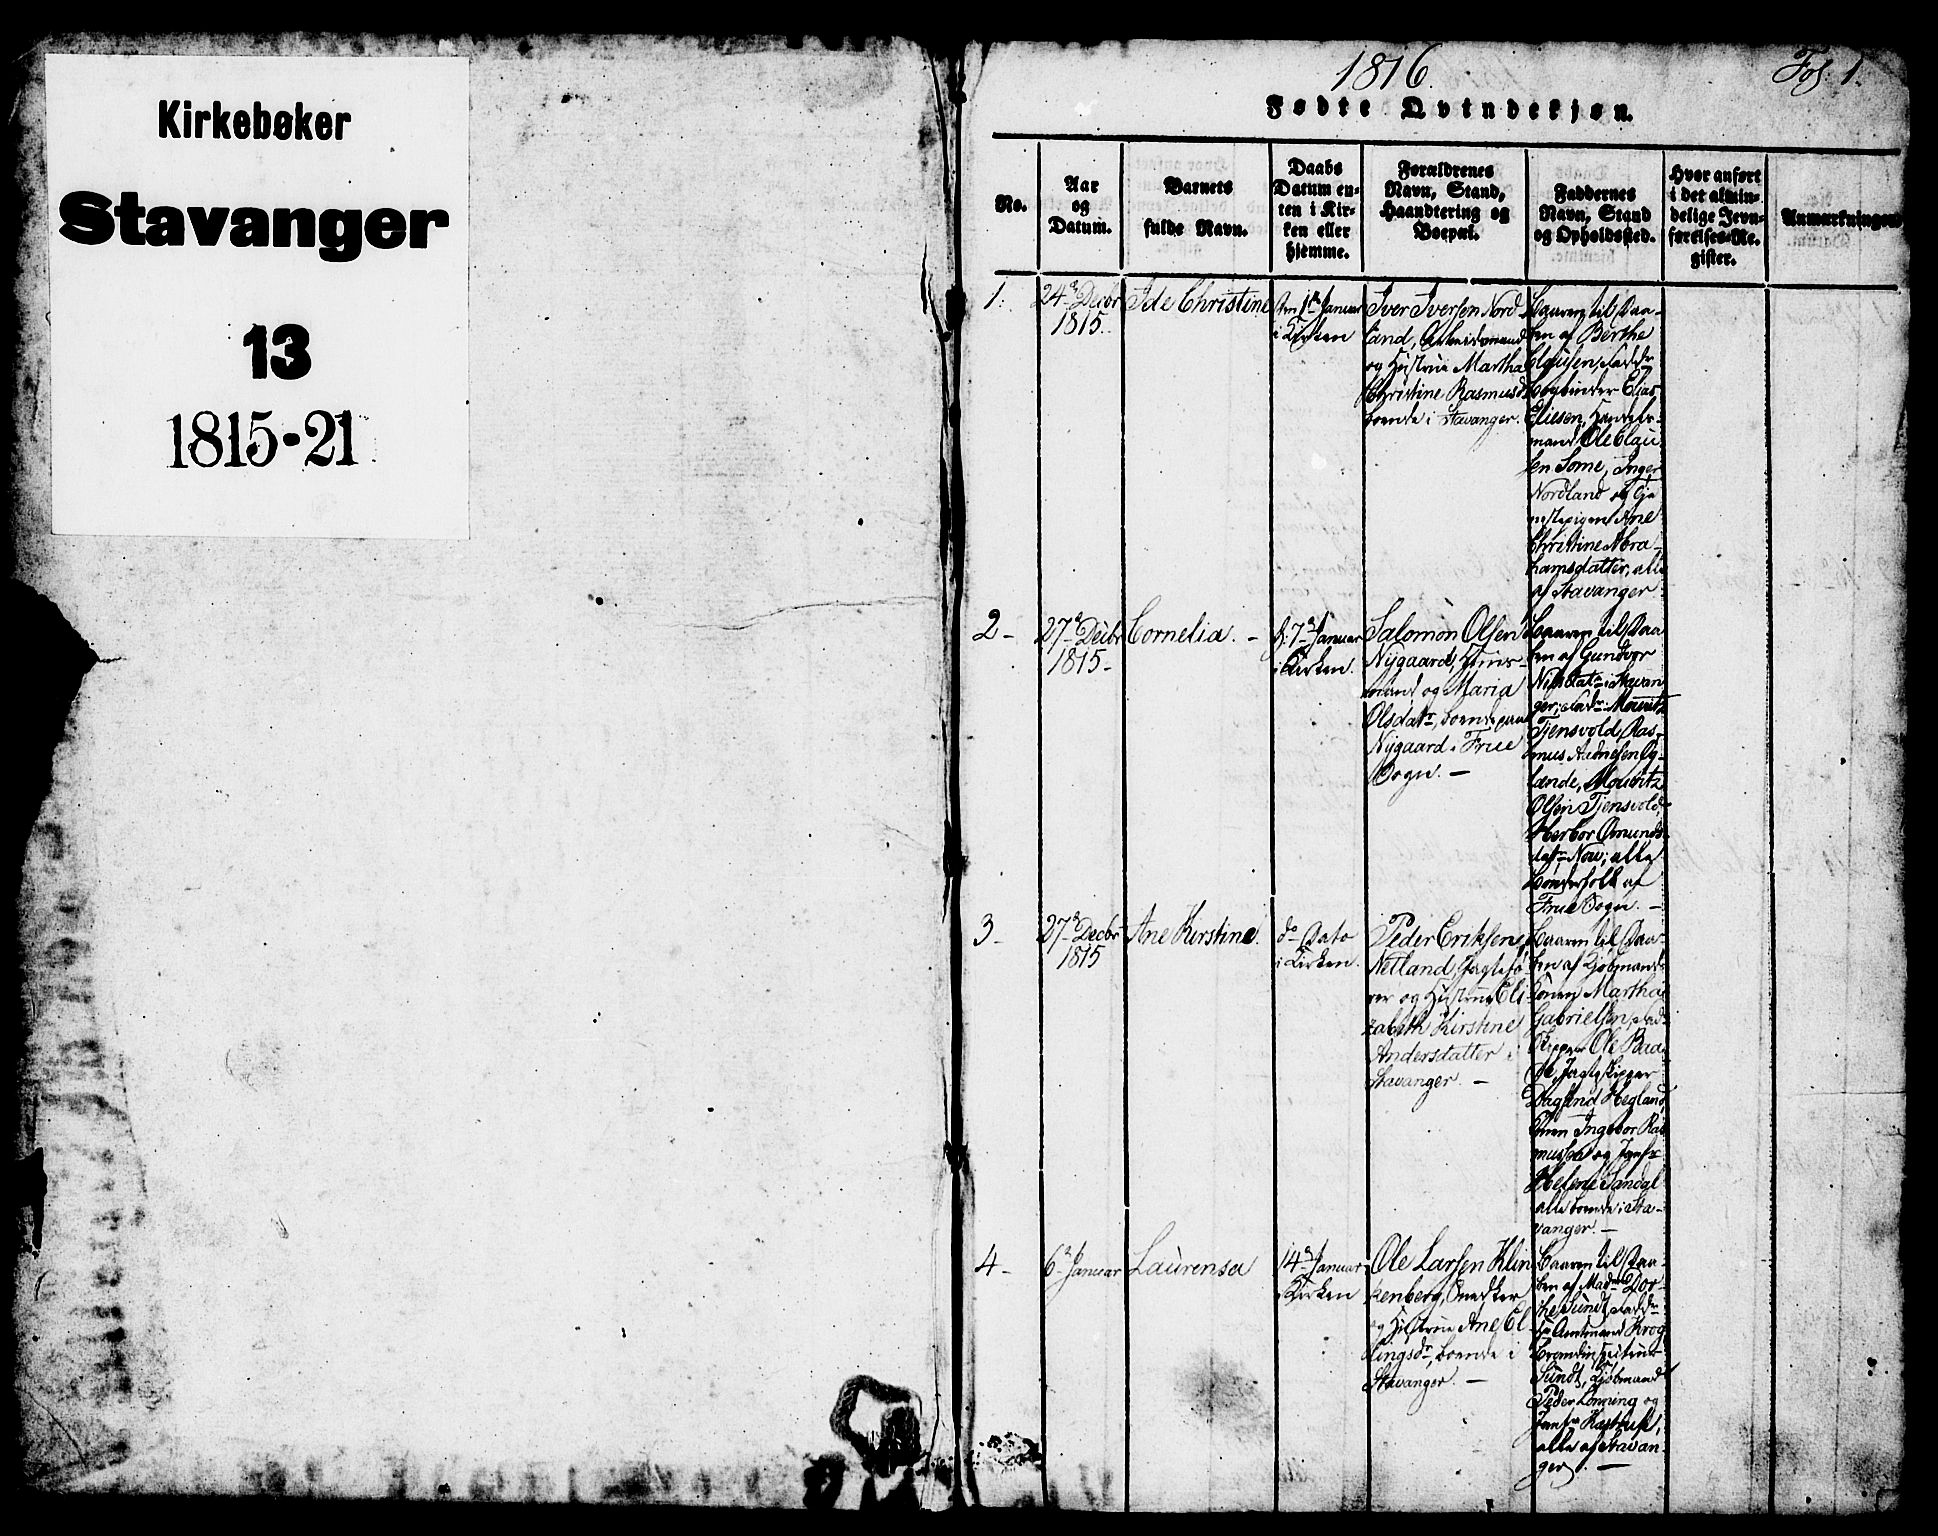 Kirkebøker
Stavanger
13
1815-21
1816.
Fol. 1.
Fødte Qvindekjøn.
No.
Aar
og
Datum.
Barnets
fulde Navn.
Daabs
Datum en-
ten i Kir-
ken eller
hjemme.
Forældrenes
Navn, Stand,
Haandtering og
Boepæl.
Faddernes
Navn, Stand
og Opholdssted.
Hvor anført
i det almin-
delige Jevn-
førelses-Re-
gister.
Anmærkninger
1.
24de Decbr
1815.
Ide Christine
den 1ste Januar
i Kirken
Iver Iversen Nord
land, Arbeidsmand
og Hustrue Martha
Christine Rasmusd
boende i Stavanger.
Baaren til Daa-
ben af Berthe
Clausen, Fadde
Bogbinder Elias
Eliesen, Handels-
mand Ole Clau
sen Some, Inger
Nordland og Tje
nestepigen Ane
Christine Abra-
hamsdatter, alle
af Stavanger
2-
27de Decbr
1815-
Cornelia. -
d. 7de Januar
i Kirken.
Salomon Olsen
Nygaard, Huus-
mand og Maria
Olsdatr, boende paa
Nygaard i Frue
Sogn. -
Baaren til Daa
ben af Gundvor
Nilsdatr i Stavan
ger, Fadr: Mouritz
Tjensvold, Ras-
mus Aanesen Og-
lænde, Mouritz
Olsen Tjensvold,
Herbor Omunds-
datr Nou; alle
Bønderfolk af
Frue Sogn. -
3-
27de Decbr
1815
Ane Kirstine.
do Dato
i Kirken.
Peder Eriksen
Netland, Jagtefø-
rer og Hustrue Eli-
zabeth Kirstine
Andersdatter i
Stavanger. -
Baaren til Daa-
ben af Kjøbmand-
konen Martha
Gabrielsen, Fad-
Skipper Ole Baa
de, Jagtskipper
Daglund Hegland,
Konen Ingebor Ras
mussen og Jomfr
Helene Sandal
alle boende i Sta-
vanger. -
4-
6te Januar
Laurensa
14de Januar
i Kirken
Ole Larsen Klin
kenberg, Snedker
og Hustrue Ane El-
lingsdr, boende i
Stavanger. -
Baaren til Daa-
ben af Madme Dor-
the Sundt, Faddr
Hr Amtmand Krog
Brandinspecteur
Sundt, Kjøbmand
Peder Lønning og
Jomfr Kastrup,
alle af Stavan-
ger. -